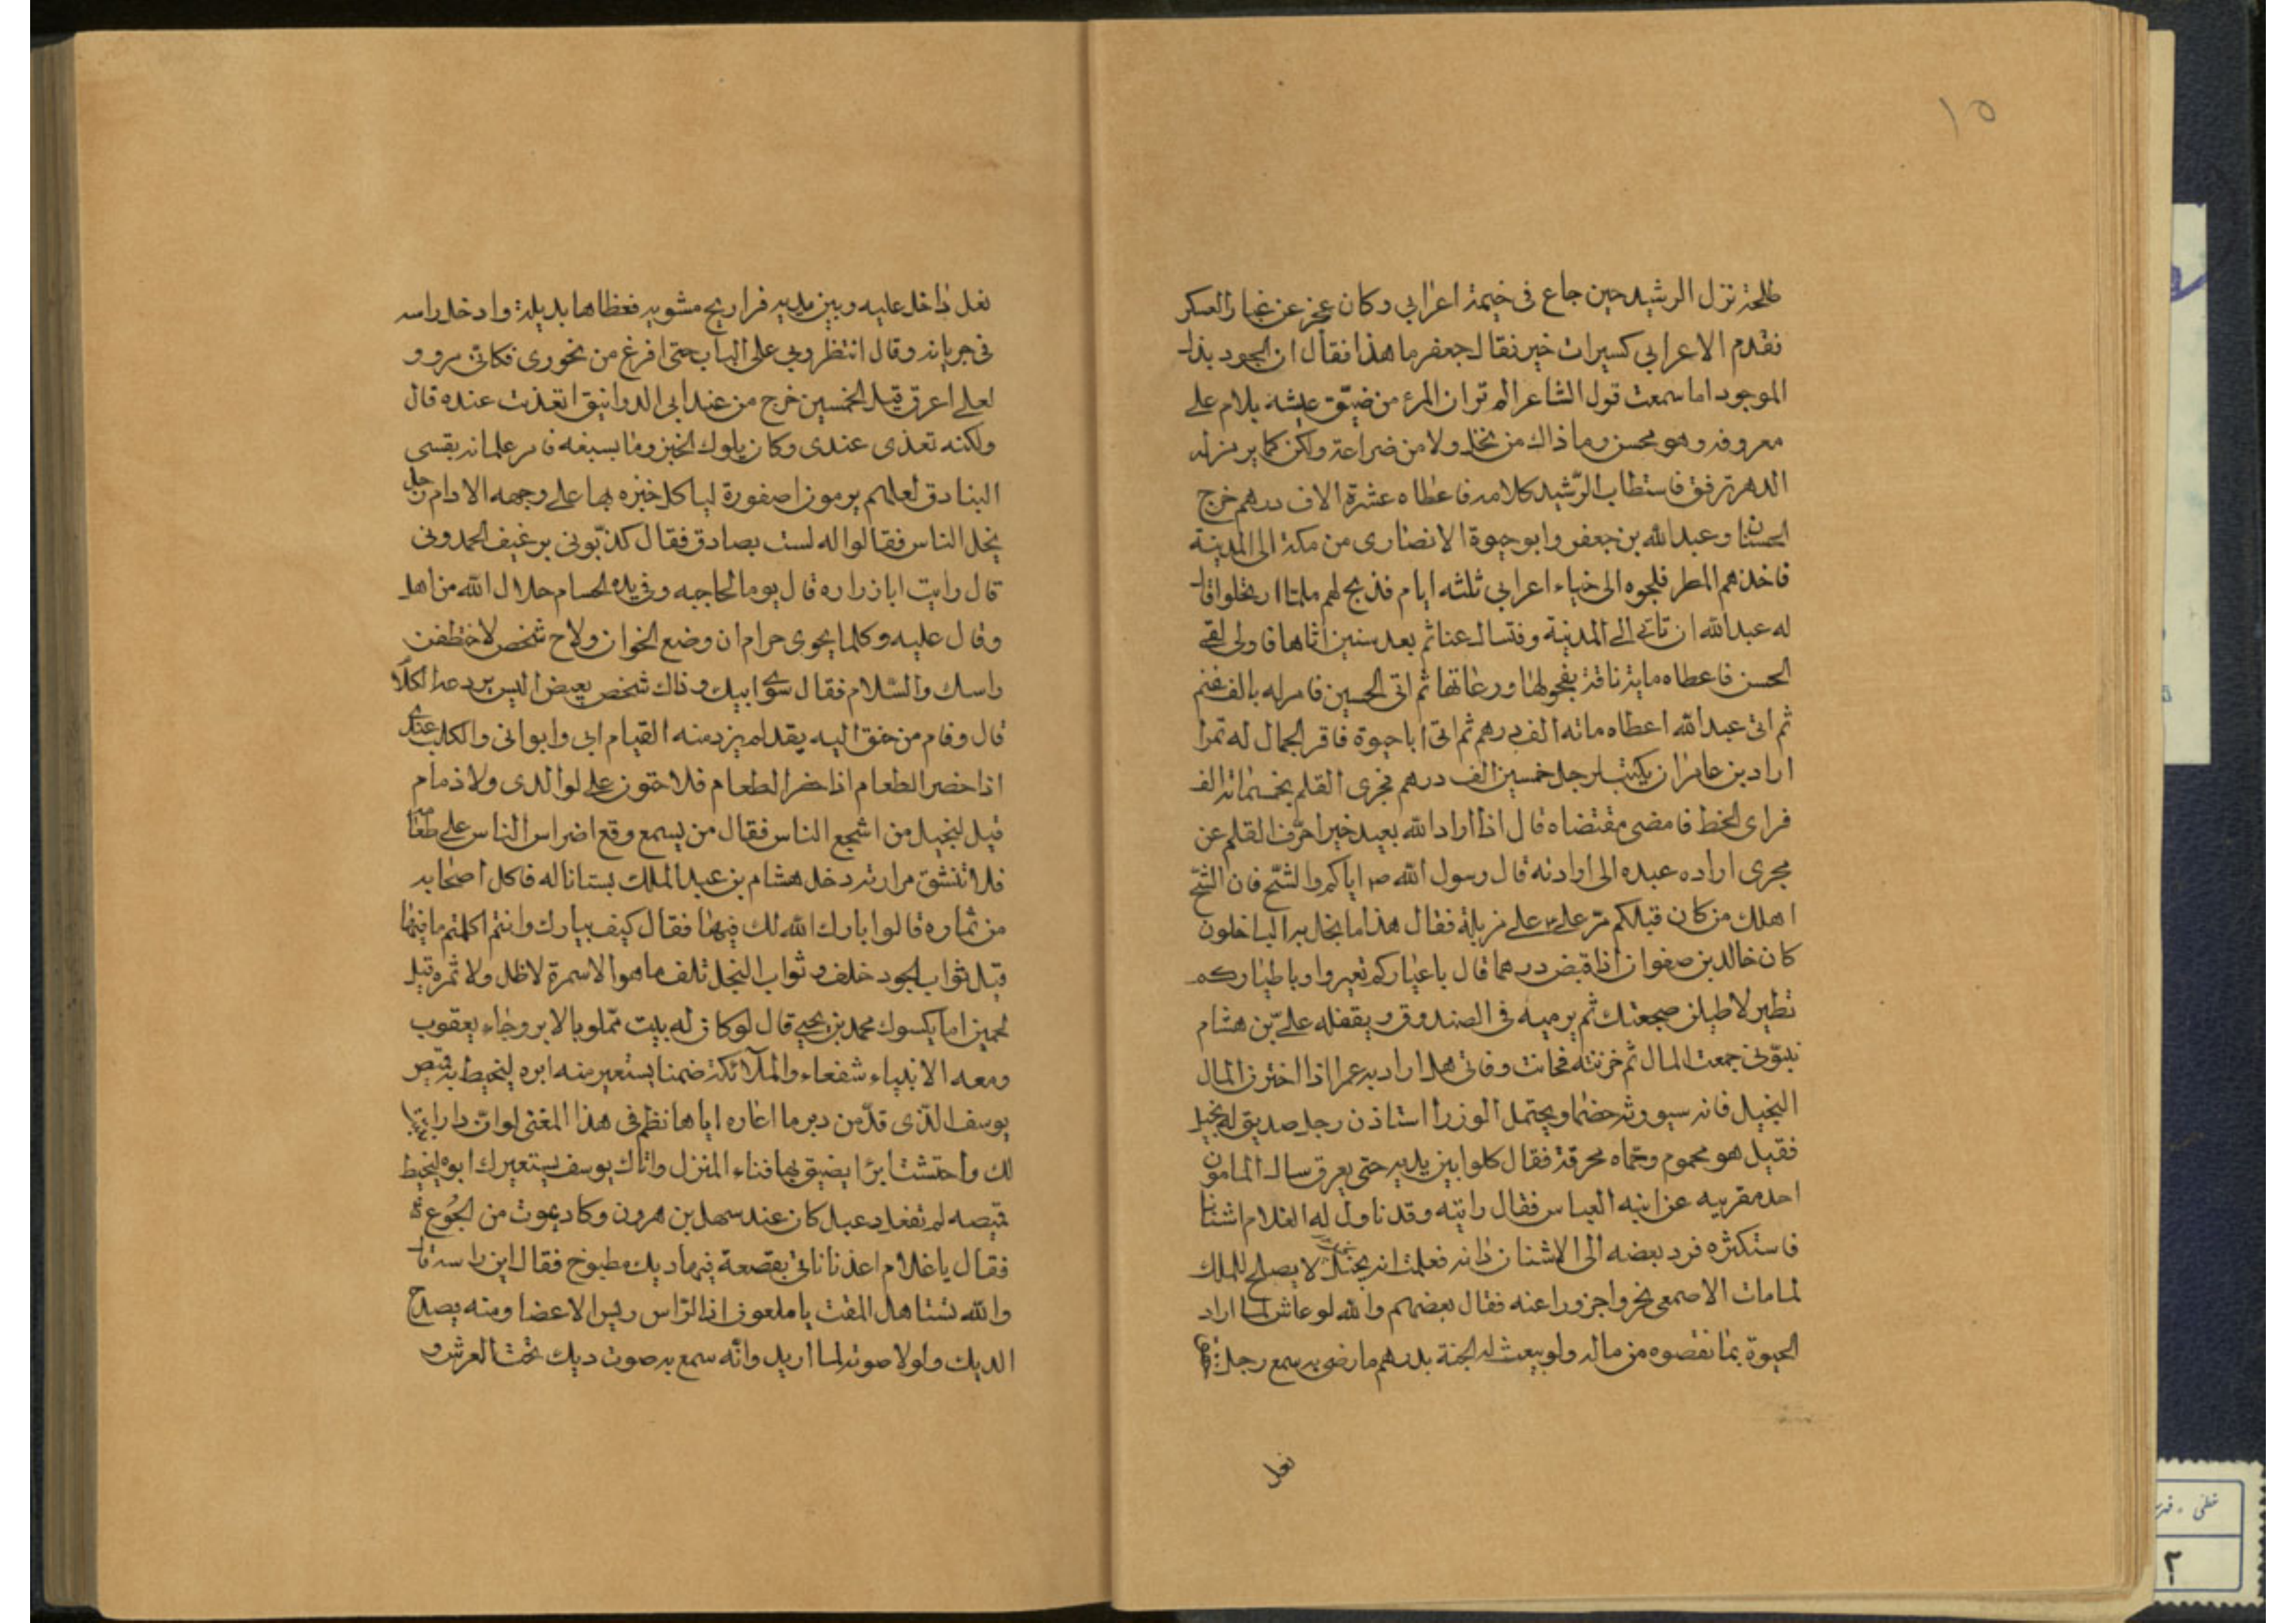 ١٥
طلحة نزل الرشيد حين جاع في خيمة اعرابي وكان عجز عن غبار العسكر
فقدم الاعرابي كسيرات خبز فقال جعفر ما هذا فقال ان الجود بذل
الموجود اما سمعت قول الشاعر الم تر ان المرء من ضيق عيشه يلام على
معروفه وهو محسن وما ذاك من بخل ولا من ضراعة ولكن كما يزمن له
الدهر ترفق فاستطاب الرّشيد كلامه فاعطاه عشرة الاف درهم خرج
الحسنان وعبد الله بن جعفر وابو حيوة الانصاري من مكة الى المدينة
فاخذهم المطر فلجوه الى خباء اعرابي ثلثه ايام فذبح لهم فلما ارتحلوا قال
له عبد الله ان تاتي الى المدينة وفتسال عنا ثم بعد سنين اتاها فاولى لقى
الحسن فاعطاه ماية ناقة بفحولها ورعاتها ثم اتى الحسين فامر له بالف غنم
ثم اتى عبد الله اعطاه مائه الف درهم ثم اتى ابا حيوة فاقر الجمال له تمرا
اراد بن عامر ان يكتب لرجل خمسين الف درهم فجرى القلم بخمسمائة الف
فراى الخط فامضى مقتضاه قال اذا اراد الله بعبد خيرا حرّف القلم عن
مجرى اراده عبده الى ارادته قال رسول الله ص اياكم والشّح فان الشحّ
اهلك من كان قبلكم مرّ علي ع على مزبلة فقال هذا ما بخل به الباخلون
كان خالد بن صفوان اذا قبض درهما قال يا عيار كم تعير وا ويا طيار كم
تطير لاطيلن ضجعتك ثم يرميه في الصندوق ويقفله عليّ بن هشام
جمعت المال ثم خزنته فحانت وفاتى هلا اراد به عمرا اذا اختزن المال
البخيل فانه سيورثه خصما ويحتمل الوزرا استاذن رجل صديق له بخيل
فقيل هو محموم وحمّاه محرقة فقال كلوا بين يديه حتى يعرق سال المامون
احد مقربيه عن ابنه العباس فقال رايته وقد ناول له الغلام اشنانا
فاستكثره فرد بعضه الى الاشنان دانه فعلمت انه بخيل لا يصلح للملك
لما مات الاصمعي بخروا جزورا عنه فقال بعضهم والله لو عاش لما اراد
الحيوة بما نقصوه من ماله ولو بيعت له الجنة بدرهم ما رضى به سمع رجل
نعل
نعل داخل عليه وبين يديه فراريج مشويه فغطاها بذيله وادخل راسه
في جربانه وقال انتظروني على الباب حتى افرغ من بخوري فكانى مرو و
لعلي اعرق قيل لخمسين خرج من عند ابي الدوانيق اتغذيت عنده قال
ولكنه تغذى عندي وكان يلوك الخبز وما يسيغه فامر غلمانه بقسي
البنادق لعلهم يرمون اصفورة لياكل خبزه بها على وجهه الادام رجل
بخل الناس فقالوا له لست بصادق فقال كذّبوني برغيف الحمدوني
قال رايت ابا زراره قال يوما لحاجبه وفي يده الحسام حلال الله من اهل
وقال عليه وكلما يحوى حرام ان وضع الخوان ولاح شخص لاختطفن
راسك والسّلام فقال سوى ابيك وذاك شخص بعيض ليس يردعه الكلا
قال وقام من حنق اليه يقدام يزدمنه القيام ابي وابواني والكلب عندي
اذا حضر الطعام اذا حضر الطعام فلا حقوق علي لوالدي ولا ذمام
قيل لبخيل من اشجع الناس فقال من يسمع وقع اضراس الناس على طعامه
فلا تنشق مرارته دخل هشام بن عبد الملك بستانا له فاكل اصحابه
من ثماره قالوا بارك الله لك فيها فقال كيف يبارك وانتم اكلتم ما فيها
قيل ثواب الجود خلف وثواب البخل تلف ما هو الا سمرة لا ظل ولا ثمره قيل
لحمين اما يكسوك محمد بن يحيى قال لو كان له بيت مملو بالابر وجاء يعقوب
ومعه الانبياء شفعاء والملآئكة ضمنا يستعير منه ابره ليخيط به قميص
يوسف الذّى قدّ من دبر ما اعاره اياها نظم في هذا المعنى لو ان دارا بنيت
لك واحتشت ابرا يضيق بها فناء المنزل واتاك يوسف يستعيرك ابرة ليخيط
قميصه لم تفعل دعبل كان عند سهل بن هرون وكاد يموت من الجوع
فقال يا غلام اغذنا فاتي بقصعة فيها ديك مطبوخ فقال اين راسه قال
والله تستاهل المقت يا ملعون اذ الرّاس ريس الاعضا ومنه يصدح
الديك ولولا صوته لما اريد وانّه سمع به صوت ديك تحت العرش و
٢